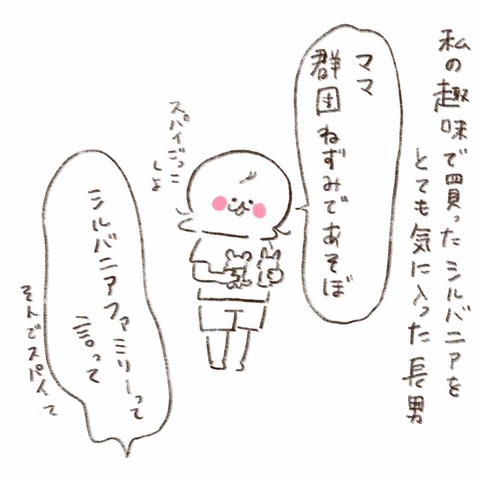 私の趣味で買ったシルバニアを
とても気に入った長男
ママ
群団ねずみであそぼ
スパイごっこ
しよ
シルバニアファミリーって
言って
そんでスパイて